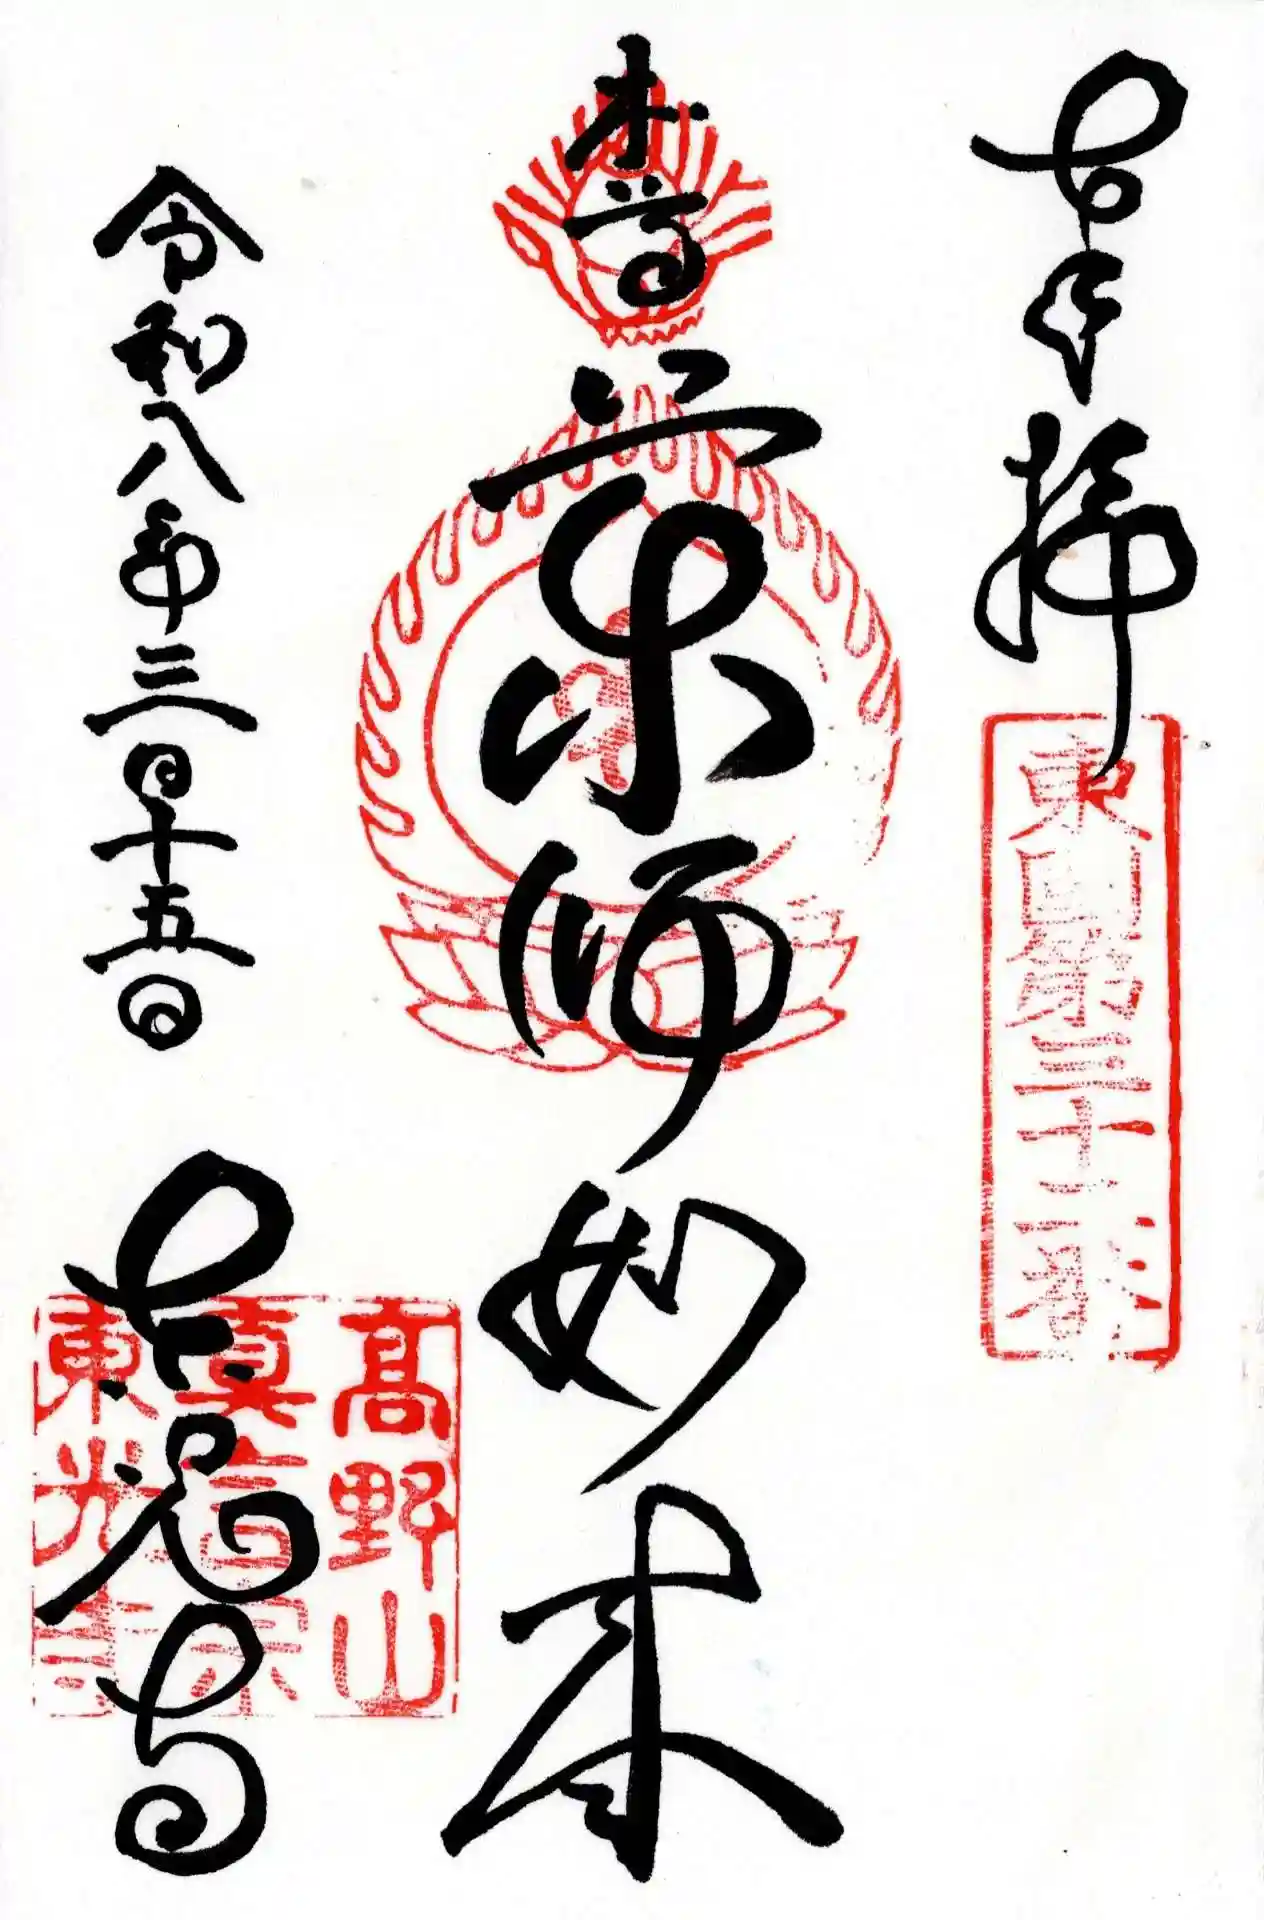 奉拝
東国第三十二番
本尊
薬師如来
令和八年三月十五日
東光寺
高野山
真言宗
東光寺